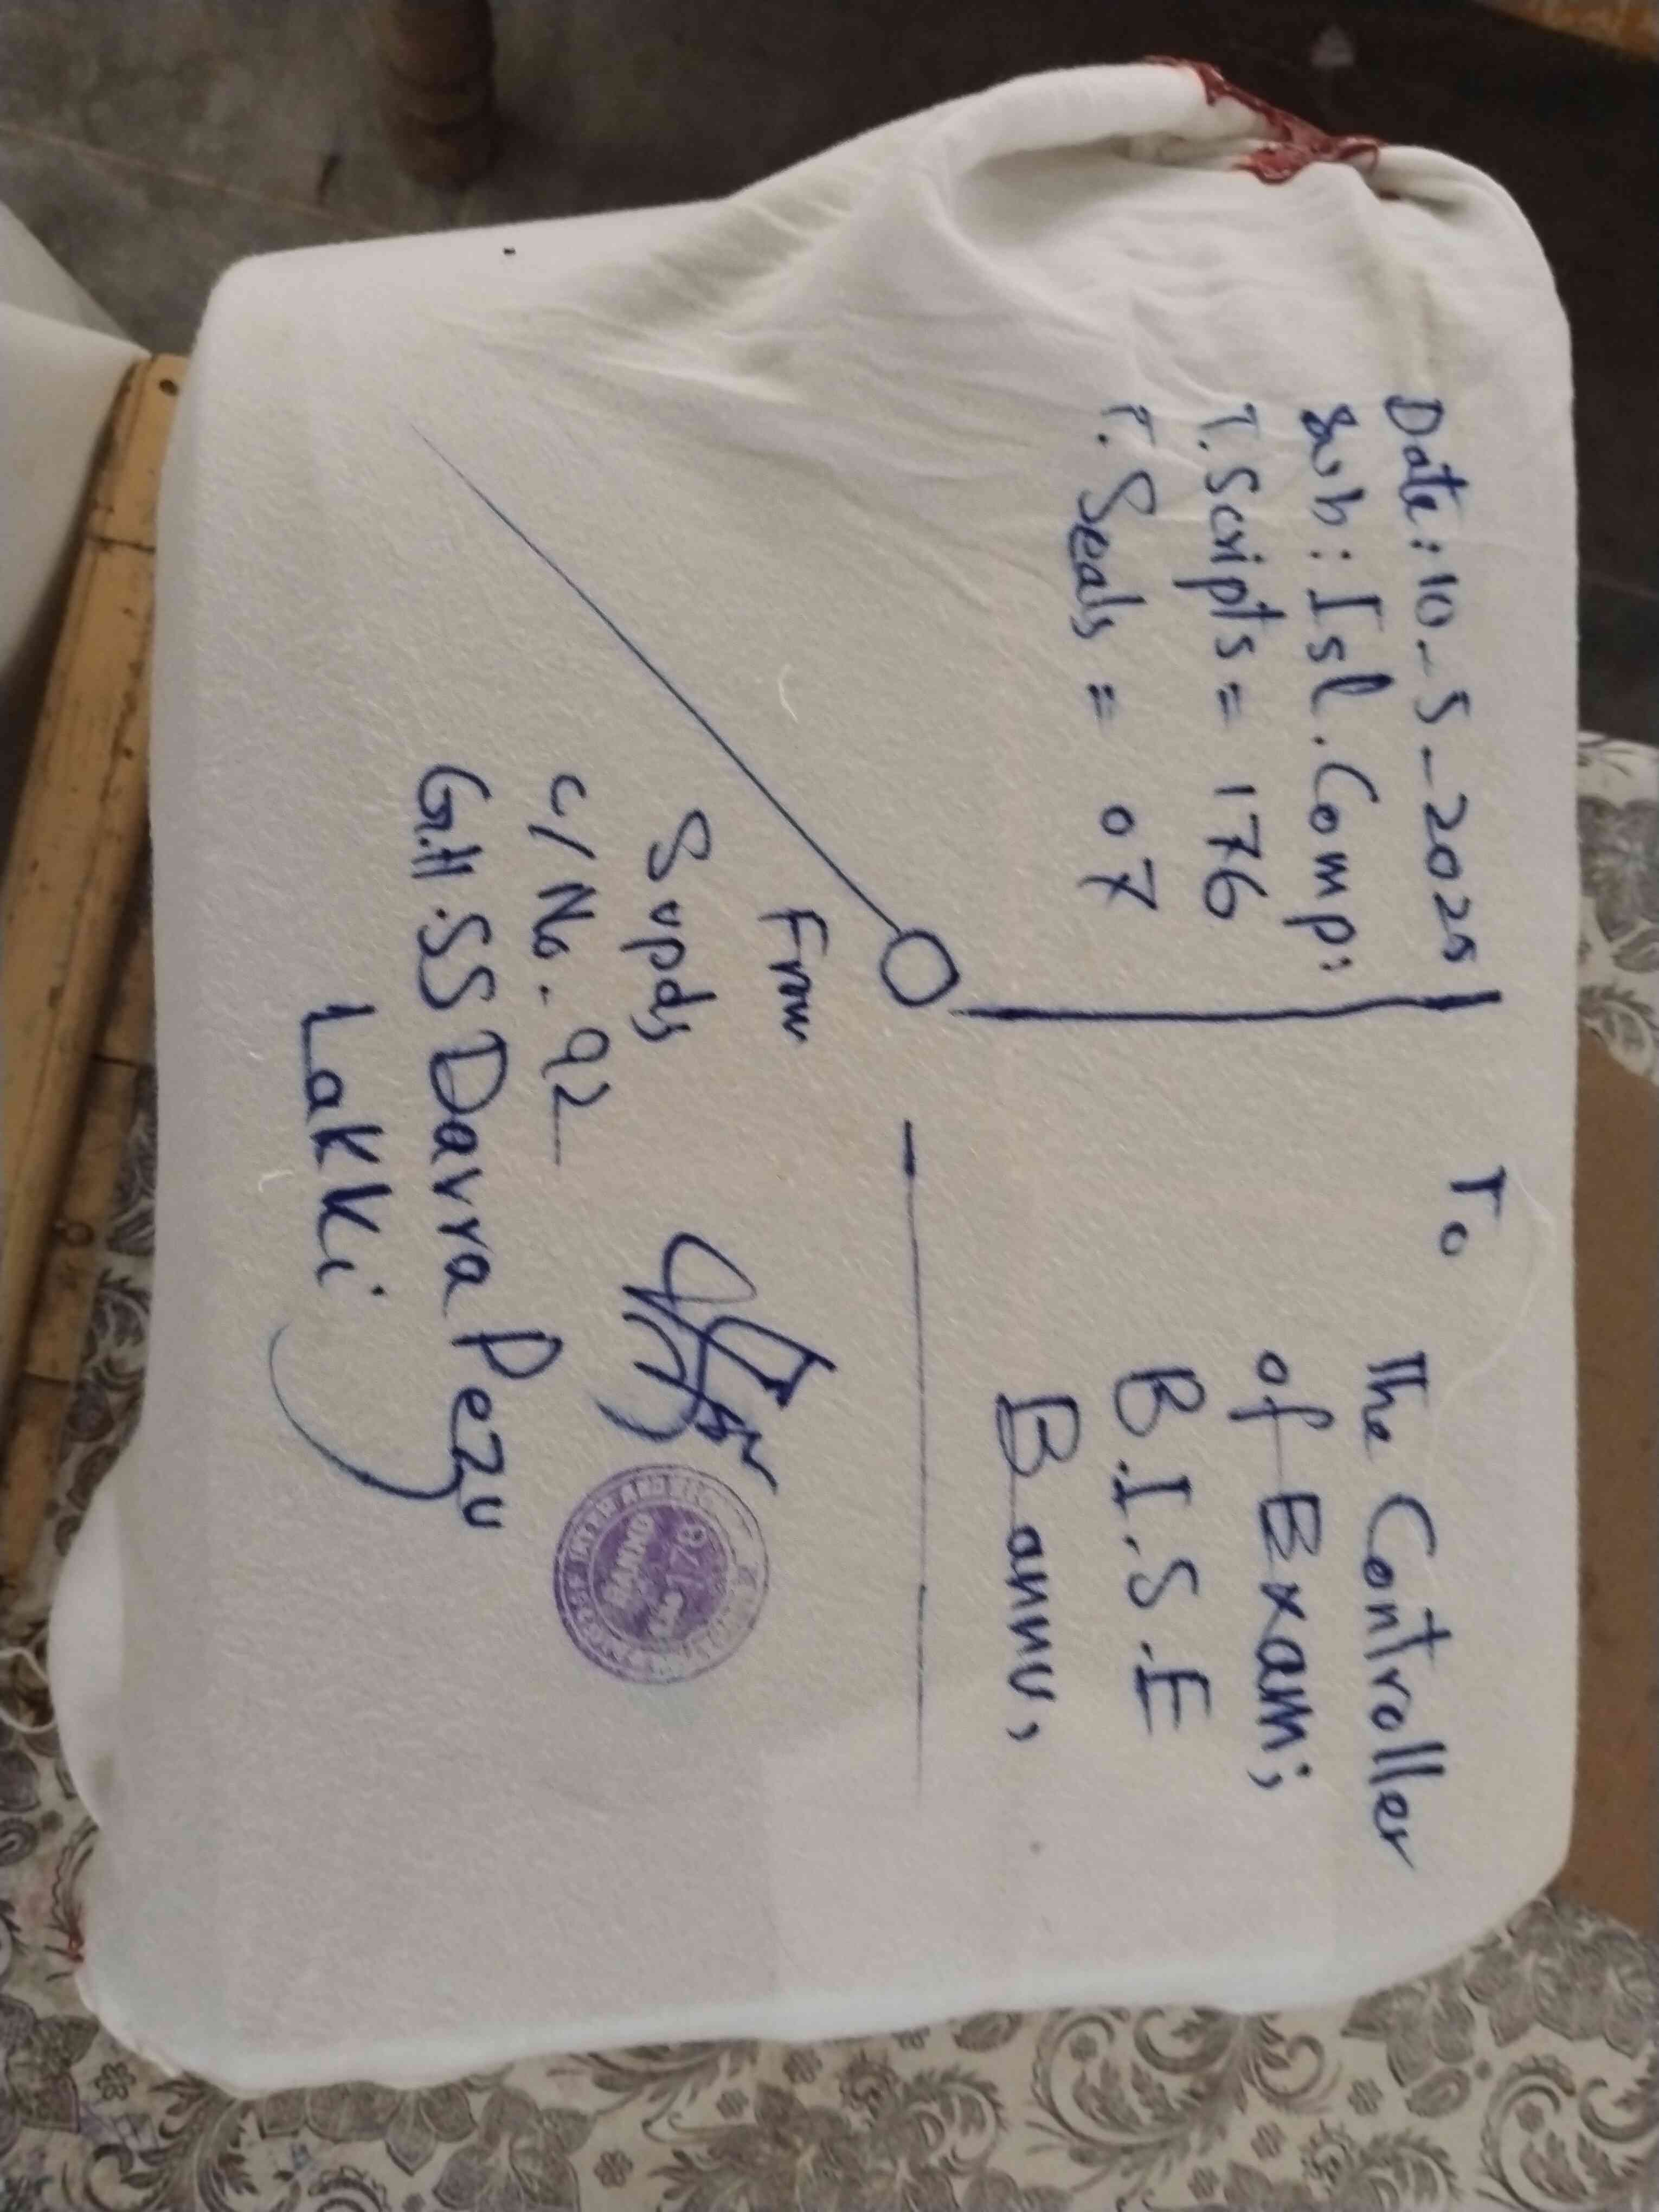 Date: 10-5-2025
Sub: Isl. Comp:
T. Scripts = 176
T. Seals = 07
To
The Controller
of Exam;
B.I.S.E
Bannu,
From
Supdt
C/No. 92
G.H.SS Darra Pezu
Lakki
BANNU
178